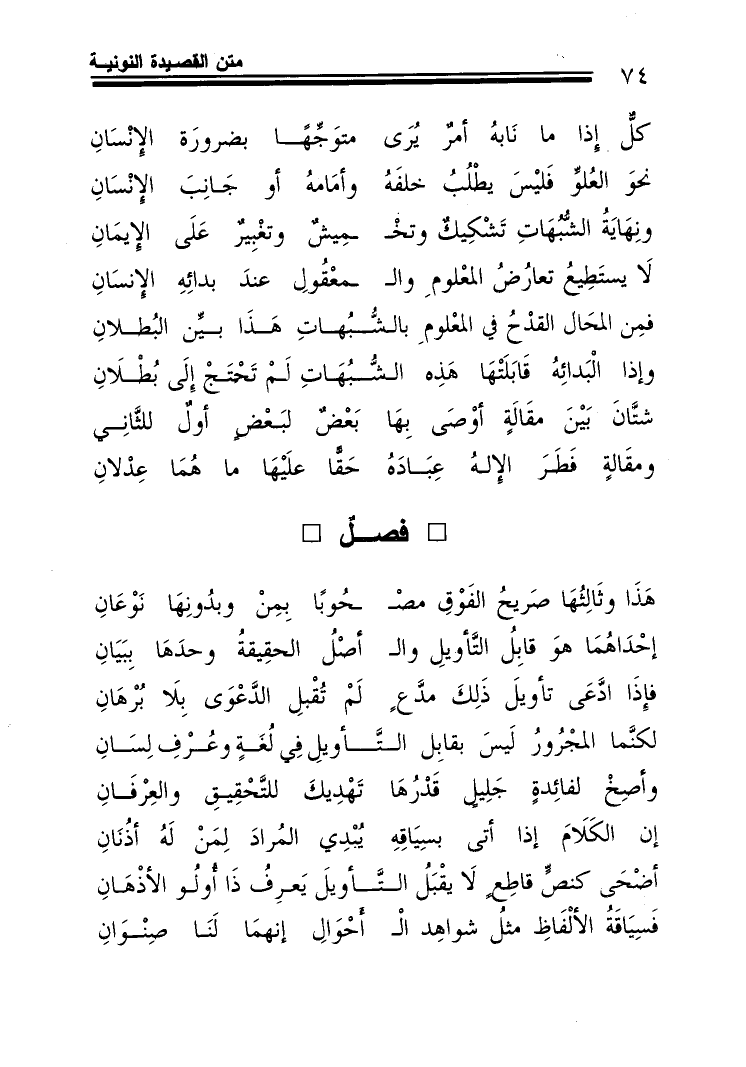 ٧٤ متن القصيدة النونية
كلٌّ إِذا ما نَابهُ أمرٌ يُرَى متوَجِّهًــا بضرورَة الإِنْسَانِ
نحوَ العُلوِّ فَليْسَ يطْلُبُ خلفَهُ وأمَامهُ أو جَانِبَ الإِنْسَانِ
ونِهَايَةُ الشُّبُهَاتِ تَشْكِيكٌ وتخْـ ـمِيشٌ وتغْبِيرٌ عَلَى الإِيمَانِ
لَا يستَطِيعُ تعارُضُ المَعْلومِ والـ ـمعْقُولِ عندَ بدائِهِ الإنسَانِ
فمِن المحَال القدْحُ في المَعْلومِ بالشُّبُهَاتِ هَـذَا بيِّن البُطـلانِ
وإذا الْبَدائِهُ قَابَلَتْهَا هَذِه الشُّبُهَاتِ لَمْ تَحْتَجْ إِلَى بُطْلَانِ
شتَّانَ بَيْنَ مقَالَةٍ أوْصَى بِهَا بَعْضٌ لبَعْضٍ أولٌ للثَّانِي
ومقَالةٍ فَطَرَ الإِلـهُ عِبَادَهُ حَقًّا علَيْهَا ما هُمَا عِدْلانِ
□ فصـلٌ □
هَذَا وثَالِثُهَا صَرِيحُ الفَوْقِ مصْـ ـحُوبًا بِمِنْ وبدُونِهَا نَوْعَانِ
إحْدَاهُمَا هوَ قابِلُ التَّأويلِ والـ أصْلُ الحقِيقةُ وحدَهَا بِبَيَانِ
فإِذَا ادَّعَى تأويلَ ذَلِكَ مدَّعٍ لَمْ تُقْبلِ الدَّعْوَى بِلَا بُرْهَانِ
لكنَّما المجْرُورُ لَيْسَ بقابِل التَّـأويلِ فِي لُغَةٍ وعُرْفِ لِسَانِ
وأَصِخْ لفائِدةٍ جَلِيلٍ قَدْرُهَا تَهْدِيكَ للتَّحْقِيقِ والعِرْفَانِ
إن الكَلَامَ إذا أتى بسيَاقِهِ يُبْدِي المُرادَ لِمَنْ لَهُ أذُنَانِ
أضْحَى كنصٍّ قاطِعٍ لَا يقْبَلُ التَّـأويلَ يَعرِفُ ذَا أُولُو الأذْهَانِ
فَسِيَاقَةُ الألْفَاظِ مثلُ شواهِدِ الْـ أَحْوَالِ إنهمَا لَنَا صِنْوَانِ